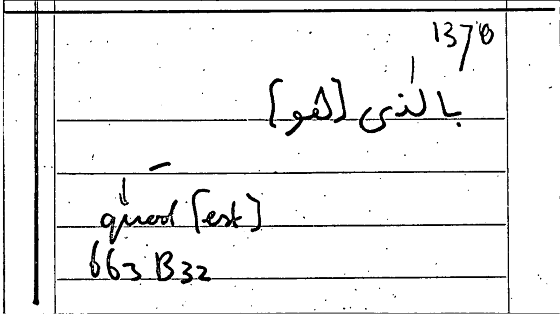 بالذى [هو]
quod [est]
663 B32